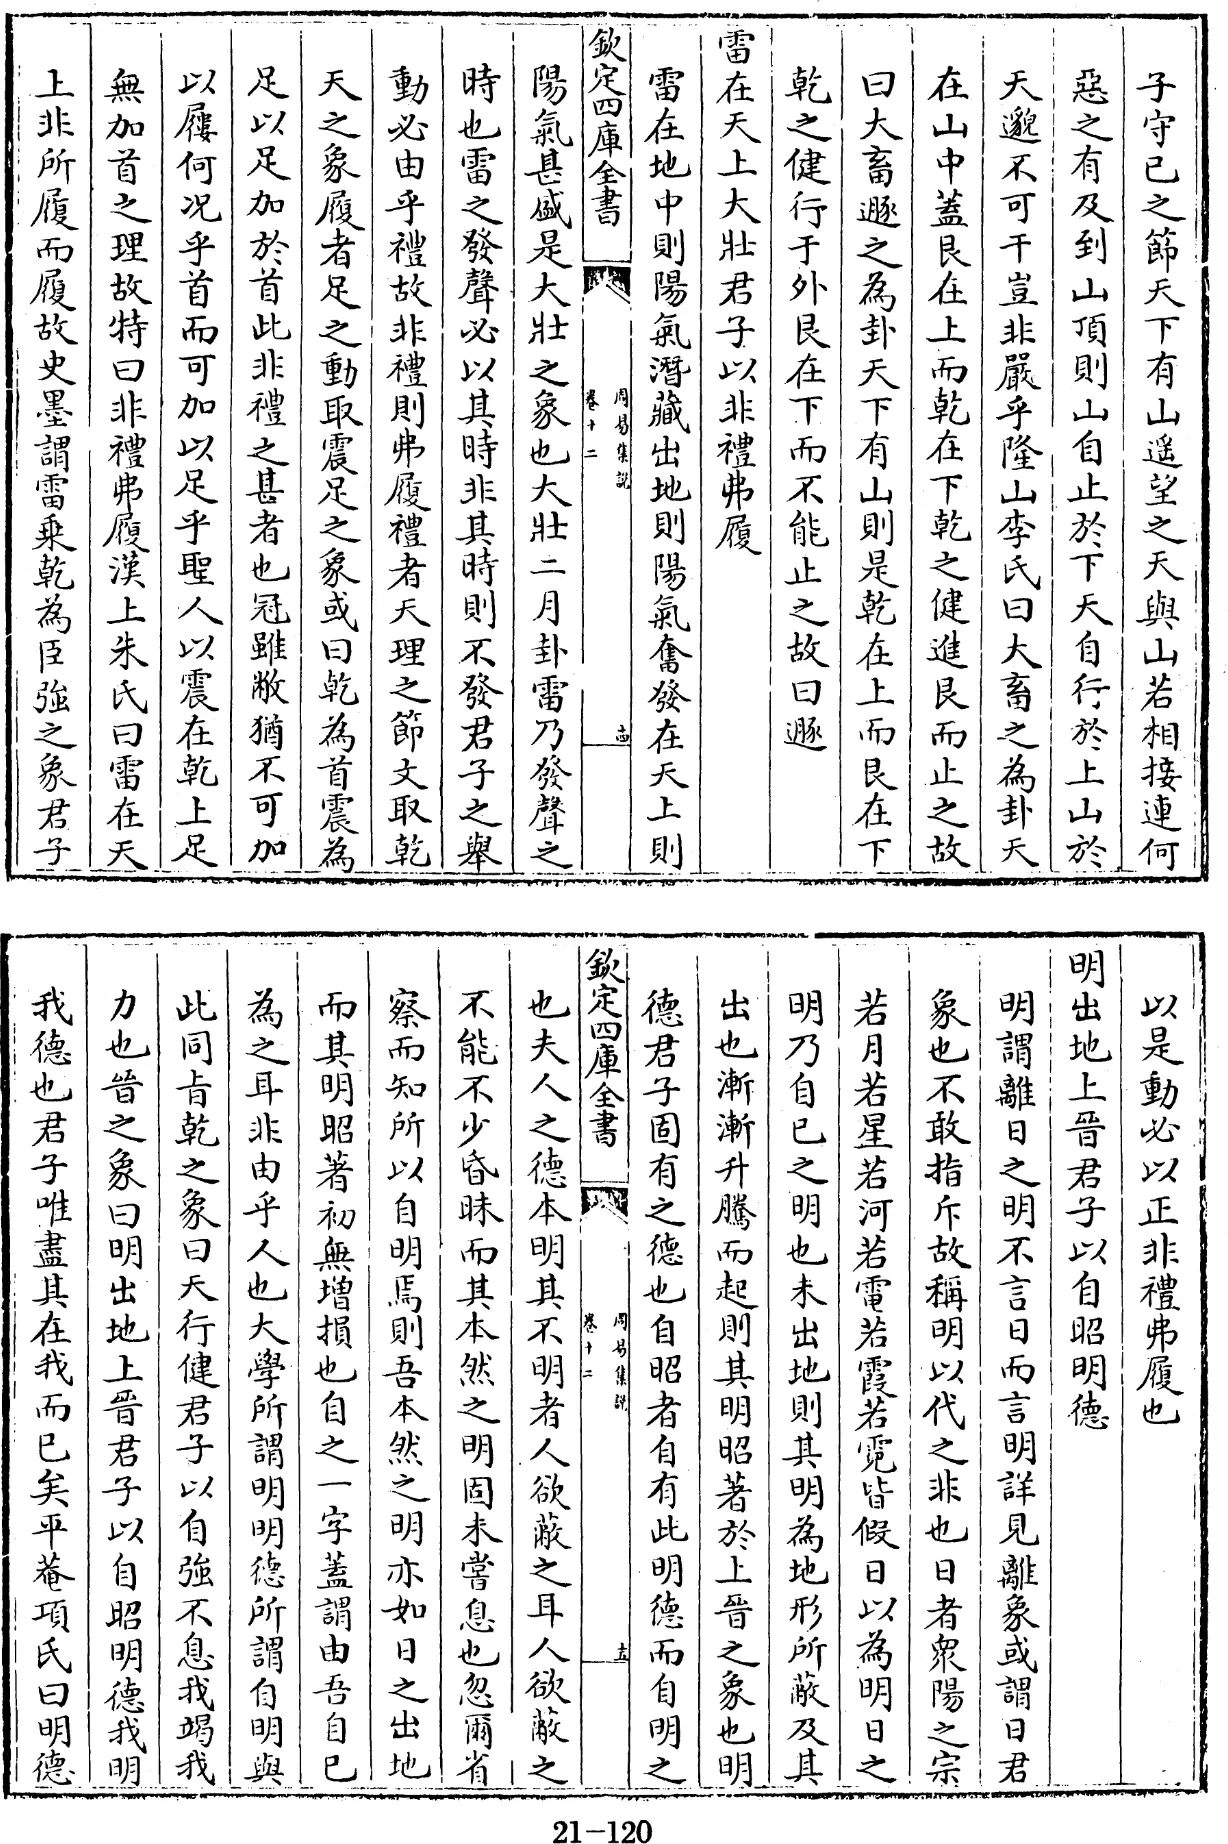 子守已之節天下有山遥望之天與山若相接連何
惡之有及到山頂則山自止於下天自行於上山於
天邈不可干豈非嚴乎隆山李氏曰大畜之為卦天
在山中蓋艮在上而乾在下乾之健進艮而止之故
曰大畜遯之為卦天下有山則是乾在上而艮在下
乾之健行于外艮在下而不能止之故曰遯
雷在天上大壯君子以非禮弗履
雷在地中則陽氣潛藏出地則陽氣奮發在天上則
欽定四庫全書
周易集說
卷十二
十四
陽氣甚盛是大壯之象也大壯二月卦雷乃發聲之
時也雷之發聲必以其時非其時則不發君子之舉
動必由乎禮故非禮則弗履禮者天理之節文取乾
天之象履者足之動取震足之象或曰乾為首震為
足以足加於首此非禮之甚者也冠雖敝猶不可加
以屨何况乎首而可加以足乎聖人以震在乾上足
無加首之理故特曰非禮弗履漢上朱氏曰雷在天
上非所履而履故史墨謂雷乘乾為臣強之象君子
以是動必以正非禮弗履也
明出地上晉君子以自昭明德
明謂離日之明不言日而言明詳見離象或謂日君
象也不敢指斥故稱明以代之非也日者衆陽之宗
若月若星若河若電若霞若霓皆假日以為明日之
明乃自已之明也未出地則其明為地形所蔽及其
出也漸漸升騰而起則其明昭著於上晉之象也明
德君子固有之德也自昭者自有此明德而自明之
欽定四庫全書
周易集說
卷十二
十五
也夫人之德本明其不明者人欲蔽之耳人欲蔽之
不能不少昏昧而其本然之明固未嘗息也忽爾省
察而知所以自明焉則吾本然之明亦如日之出地
而其明昭著初無增損也自之一字蓋謂由吾自已
為之耳非由乎人也大學所謂明明德所謂自明與
此同旨乾之象曰天行健君子以自強不息我竭我
力也晉之象曰明出地上晉君子以自昭明德我明
我德也君子唯盡其在我而已矣平菴項氏曰明德
21-120